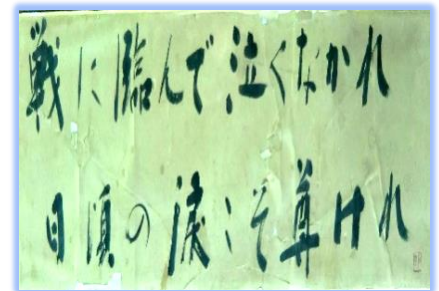 戦に臨んで泣くなかれ
日頃の涙こそ尊けれ